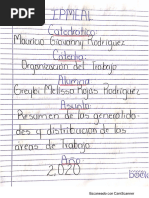 I.P.M.E.A.L
Catedratico
Mauricio Giovanny Rodriguez
Catedra:
Organización del Trabajo
Alumna
Greybi Melissa Rojas Rodriguez
Asunto
Resumen de las generalida
des y distribucion de las
areas de Trabajo.
Año
2,020
Scanned with
Escaneado con CamScanner